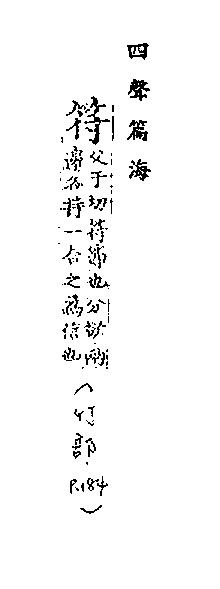 四聲篇海
符
父于切符節也分於兩
邊各持一合之為信也
（竹部 P.184）